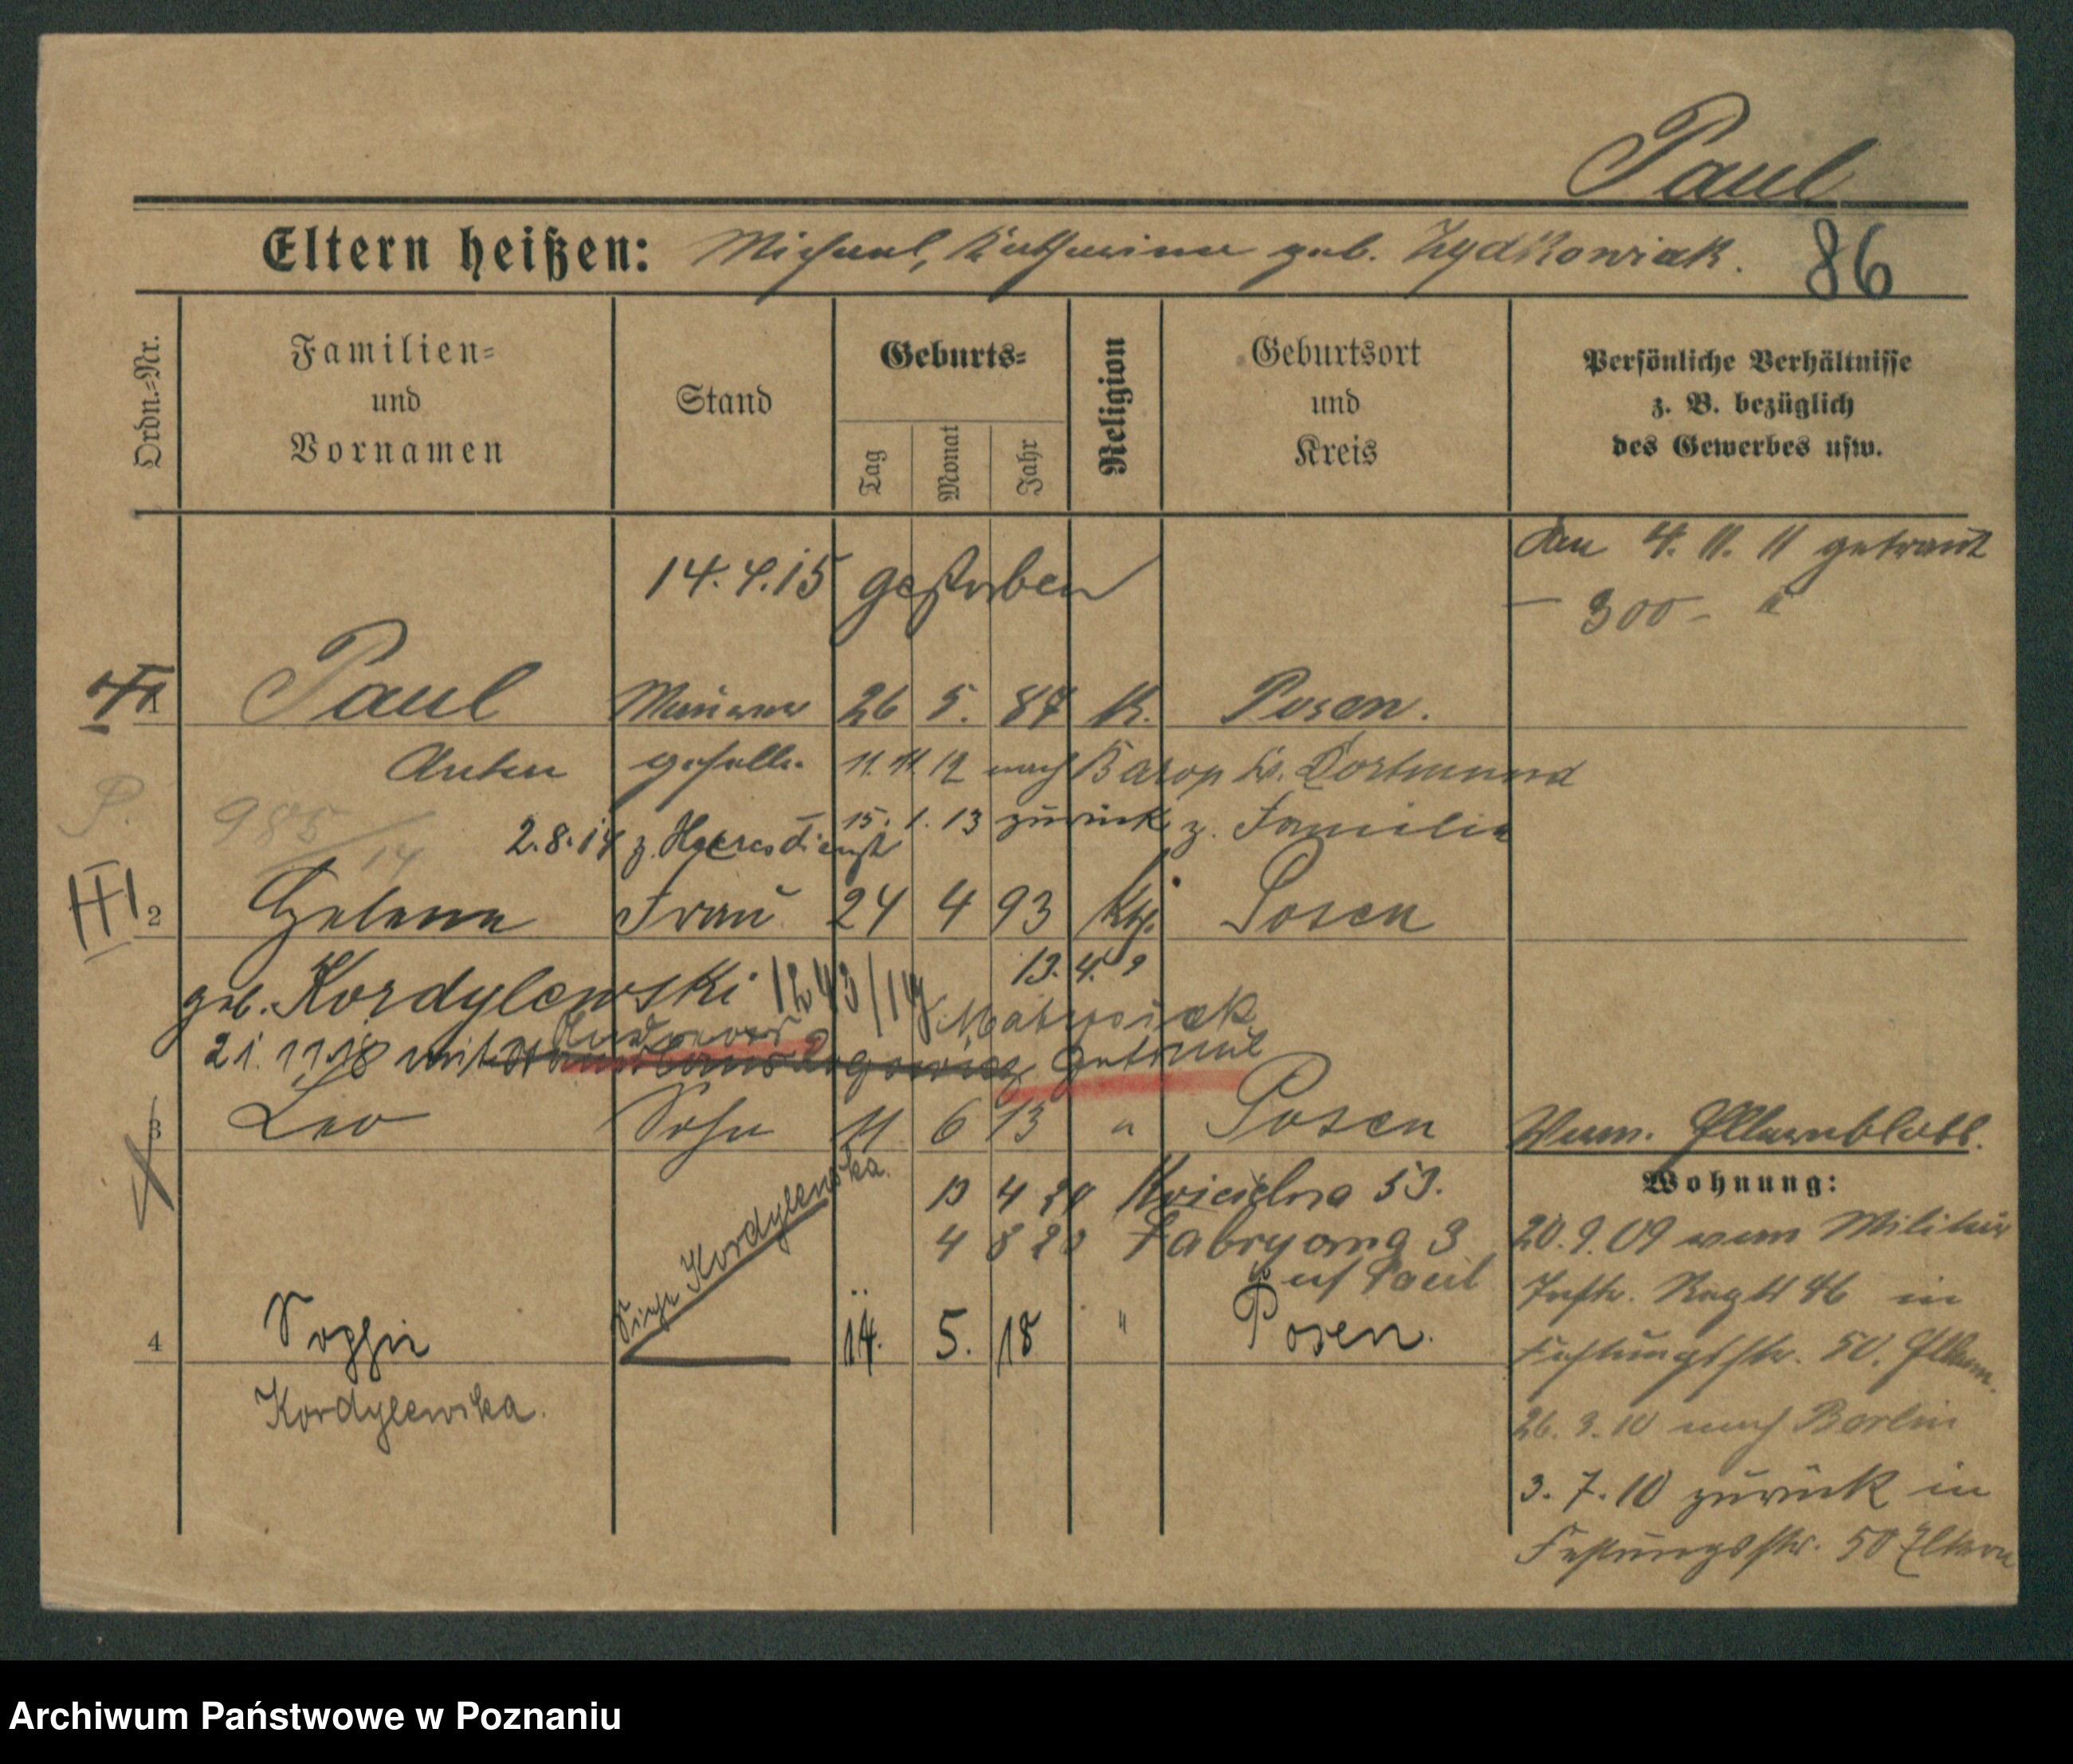 Paul
Eltern heißen: Michael, Katharina geb. Zydkowiak. 86
Ordn.-Nr.
Familien-
und
Vornamen
Stand
Geburts-
Tag
Monat
Jahr
Religion
Geburtsort
und
Kreis
Persönliche Verhältnisse
z. B. bezüglich
des Gewerbes usw.
den 4. 11. 11 getraut
14.4.15 gestorben
- 300 -
1 Paul Maurer 26 5. 87 K. Posen.
Anton geselle 11. 11. 12 nach Barop Kr. Dortmund
P. 985/14 15. 1. 13 zurück z. Familie
2.8.14 z. Heeresdienst
2 Helene Frau 24 4 93 Kth. Posen
13. 4. 9
geb. Kordylewski 1243/14
Matysiak
21. 11. 18 mit getraut
3 Leo Sohn 11 6 13 " Posen
Verm. Elternblatt.
Wohnung:
4 8 20 Fabryczna 3
auf Paul
siehe Kordylewska.
4 Sophie 14. 5. 18 " Posen.
Kordylewska.
20. 9. 09 vom Militär
Inftr. Regt 46 in
Festungsstr. 50. Eltern.
26. 3. 10 nach Berlin
3. 7. 10 zurück in
Festungsstr. 50 Eltern
Archiwum Państwowe w Poznaniu